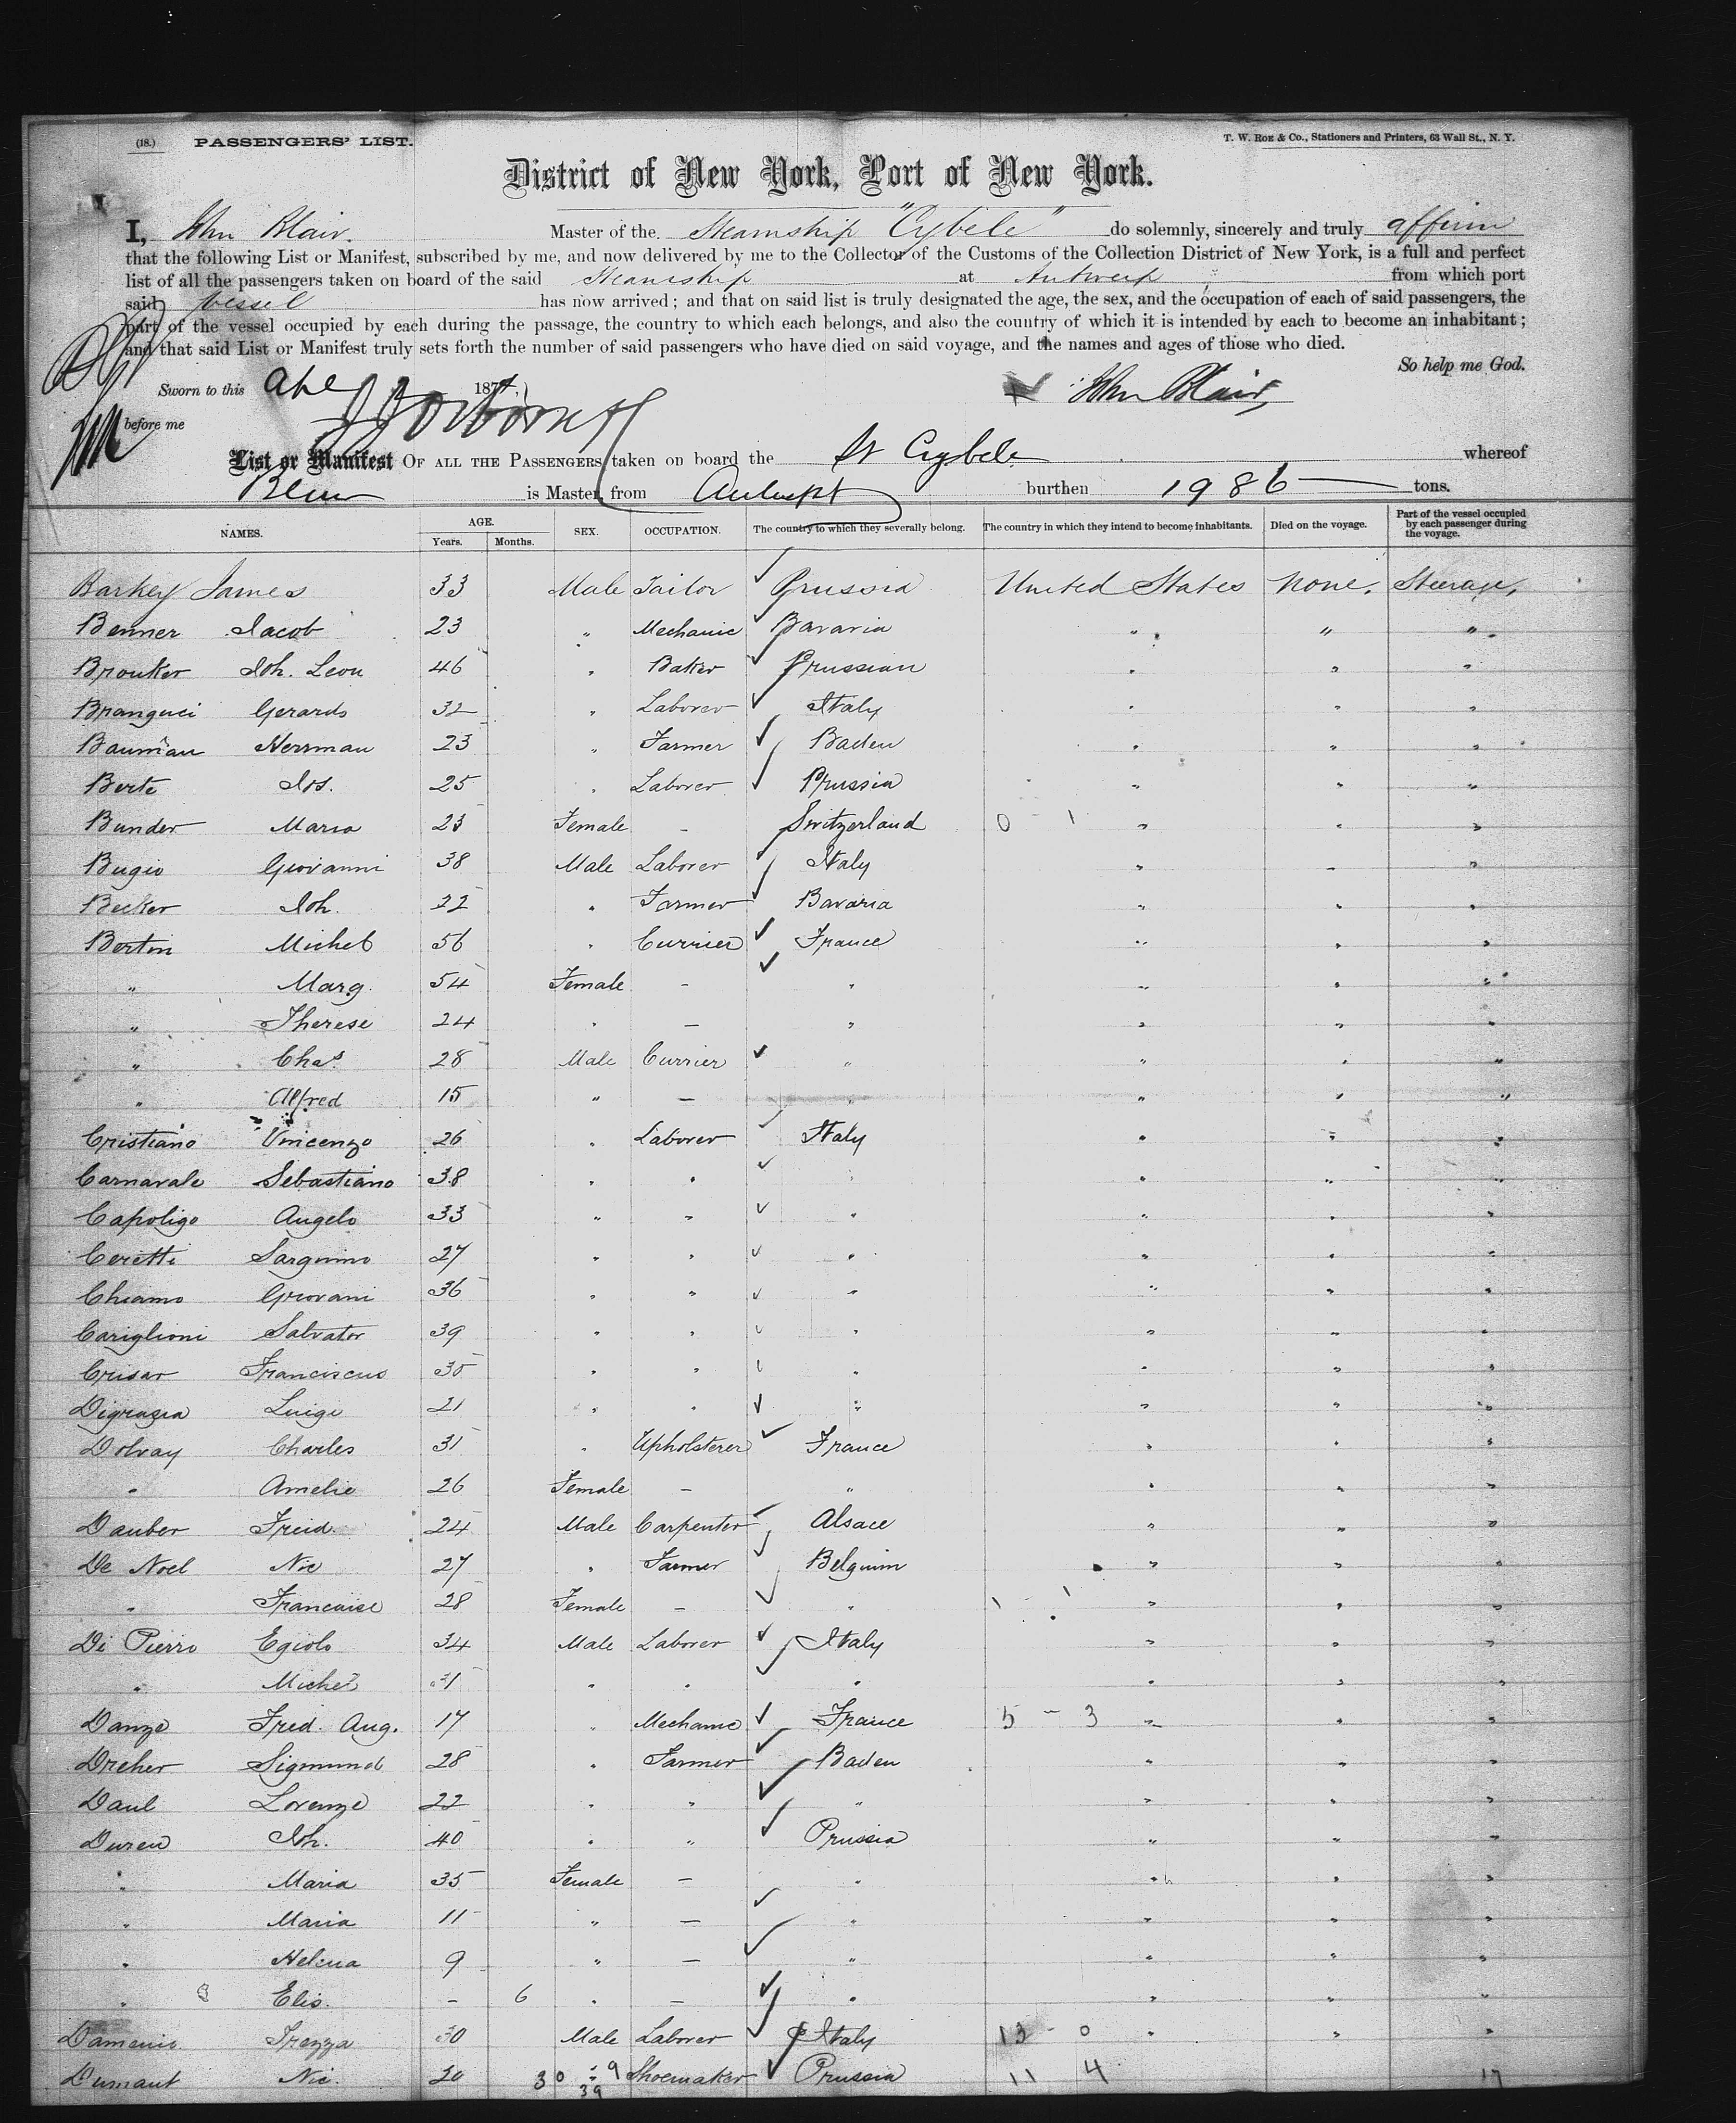 (18.) PASSENGERS' LIST. T. W. ROE & Co., Stationers and Printers, 63 Wall St., N. Y.
District of New York, Port of New York.
I, John Blair. Master of the Steamship "Cybele" do solemnly, sincerely and truly affirm
that the following List or Manifest, subscribed by me, and now delivered by me to the Collector of the Customs of the Collection District of New York, is a full and perfect
list of all the passengers taken on board of the said Steamship at Antwerp from which port
said vessel has now arrived; and that on said list is truly designated the age, the sex, and the occupation of each of said passengers, the
part of the vessel occupied by each during the passage, the country to which each belongs, and also the country of which it is intended by each to become an inhabitant;
and that said List or Manifest truly sets forth the number of said passengers who have died on said voyage, and the names and ages of those who died.
So help me God.
Sworn to this 187 John Blair,
before me
List or Manifest OF ALL THE PASSENGERS taken on board the St Cybele whereof
is Master, from burthen 1986 tons.
NAMES. AGE. Years. Months. SEX. OCCUPATION. The country to which they severally belong. The country in which they intend to become inhabitants. Died on the voyage. Part of the vessel occupied by each passenger during the voyage.
Barkey James 33 Male Tailor Prussia United States None. Steerage,
Benner Jacob 23 " Mechanic Bavaria " " "
Brouker Joh. Leon 46 " Baker Prussian " " "
Branguci Gerards 32 " Laborer Italy " " "
Bauman Herrman 23 " Farmer Baden " " "
Berte Jos. 25 " Laborer Prussia " " "
Bunder Maria 23 Female - Switzerland 0 - 1 " " "
Bugio Giovanni 38 Male Laborer Italy " " "
Becker Joh. 22 " Farmer Bavaria " " "
Bertin Michel 56 " Currier France " " "
" Marg. 54 Female - " " " "
" Therese 24 " - " " " "
" Chas. 28 Male Currier " " " "
" Alfred 15 " - " " " "
Cristiano Vincenzo 26 " Laborer Italy " " "
Carnavale Sebastiano 38 " " " " " "
Capoligo Angelo 33 " " " " " "
Ceretti Sarguino 27 " " " " " "
Chiamo Giovani 36 " " " " " "
Cariglioni Salvator 39 " " " " " "
Crisar Franciscus 35 " " " " " "
Digrazia Luigi 21 " " " " " "
Dolray Charles 31 " Upholsterer France " " "
" Amelie 26 Female - " " " "
Dauber Freid. 24 Male Carpenter Alsace " " "
De Noel Nic 27 " Farmer Belguim " " "
" Francaise 28 Female - " " " "
Di Pierro Egiolo 34 Male Laborer Italy " " "
" Michel 31 " " " " " "
Danze Fred. Aug. 17 " Mechanic France 5 - 3 " " "
Dreher Sigmund 28 " Farmer Baden " " "
Daul Lorenze 22 " " " " " "
Duren Joh. 40 " " Prussia " " "
" Maria 35 Female - " " " "
" Maria 11 " - " " " "
" Helena 9 " - " " " "
" Elis. - 6 " - " " " "
Damenic Trezza 30 Male Laborer Italy 13 - 0 " " "
Dumaut Nic. 20 30 : 9 Shoemaker Prussia 11 4 17
39